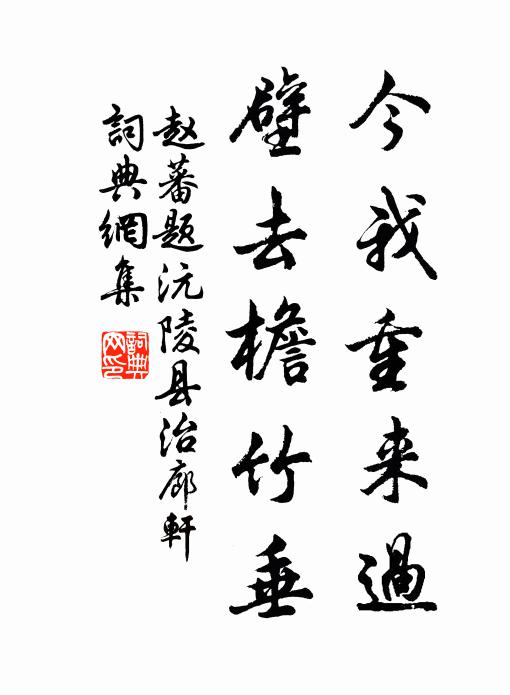 今我重来過
壁去檐竹垂
赵蕃题沅陵县治廊軒
詞典網集
詞典
网印